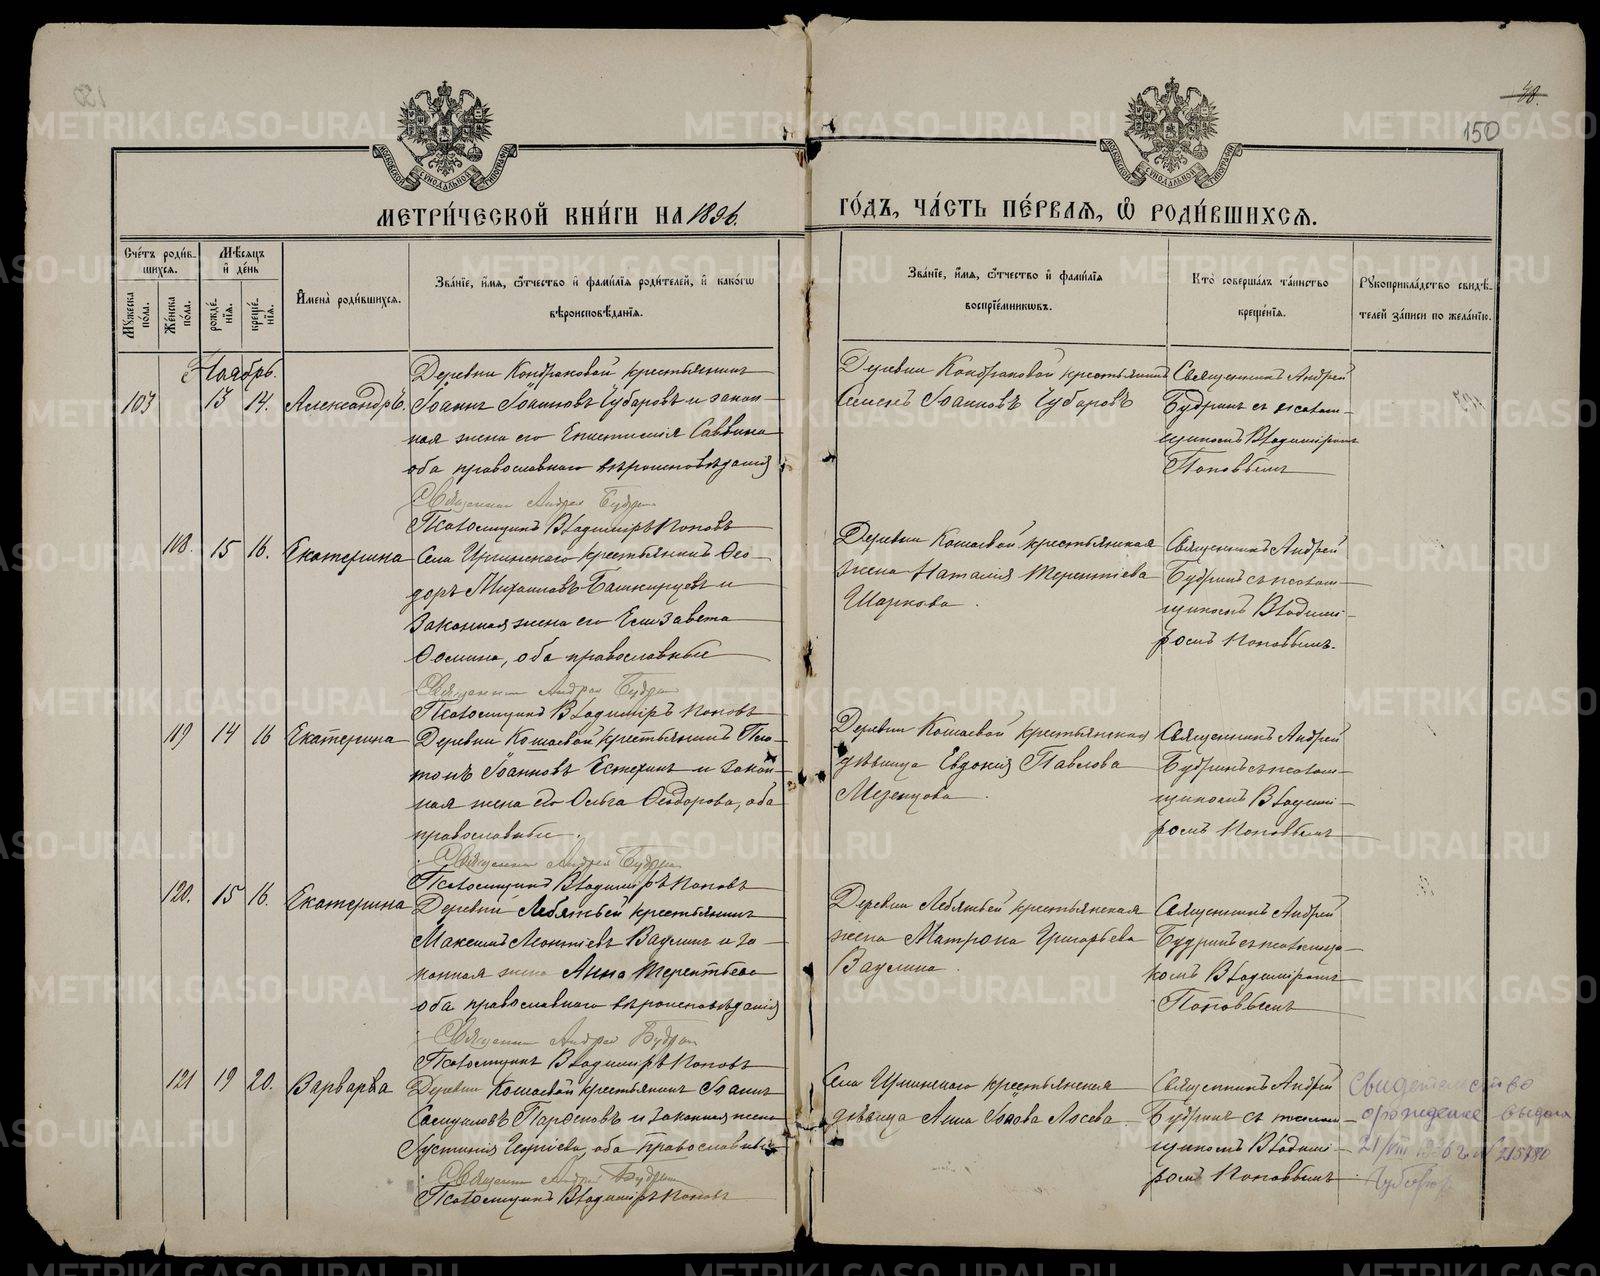 150
МЕТРИ́ЧЕСКОЙ КНИ́ГИ НА 1896.
ГО́ДЪ, ЧА́СТЬ ПЕ́РВАЯ, Ѡ҆ РОДИ́ВШИХСЯ.
Сче́тъ роди́в-
шихся.
Мѣ́сяцъ
и҆ де́нь
Мꙋ́жеска по́ла.
Же́нска по́ла.
рожде́нїя.
креще́нїя.
И҆мена̀ роди́вшихся.
Зва́нїе, и҆́мя, ѻ҆́тчество и҆ фами́лїя роди́телей, и҆ како́гѡ
вѣроисповѣ́данїя.
Зва́нїе, и҆́мя, ѻ҆́тчество и҆ фами́лїя
воспрїе́мниковъ.
Кто̀ соверша́лъ та́инство
креще́нїя.
Рꙋкоприкла́дство свидѣ́-
телей за́писи по жела́нїю.
Ноябрь.
103 13 14. Александръ.
Деревни Кондраковой крестьянинъ
Іоаннъ Іоанновъ Чубаровъ и закон-
ная жена его Епистимія Саввина
оба православнаго вѣроисповѣданія
Священник Андрей Будрин
Псаломщикъ Владиміръ Поповъ
Деревни Кондраковой крестьянинъ
Семенъ Іоанновъ Чубаровъ
Священникъ Андрей
Будринъ съ псалом-
щикомъ Владиміромъ
Поповымъ
118. 15 16. Екатерина
Села крестьянинъ Ѳео-
доръ Михаиловъ Башкирцевъ и
законная жена его Елизавета
Ѳомина, оба православные
Священник Андрей Будрин
Псаломщикъ Владиміръ Поповъ
Деревни Кошаевой крестьянская
жена Наталія Терентіева
Шаркова.
Священникъ Андрей
Будринъ съ псалом-
щикомъ Владимі-
ромъ Поповымъ.
119 14 16 Екатерина
Деревни Кошаевой крестьянинъ Пла-
тонъ Іоанновъ Естехинъ и закон-
ная жена его Ольга Ѳеодорова, оба
православные.
Священник Андрей Будрин
Псаломщикъ Владиміръ Поповъ
Деревни Кошаевой крестьянская
дѣвица Евдокія Павлова
Мезенцова.
Священникъ Андрей
Будринъ съ псалом-
щикомъ Владимі-
ромъ Поповымъ
120. 15 16. Екатерина
Деревни Лебяжьей крестьянинъ
Максимъ Леонтіевъ Ваулинъ и за-
конная жена Анна Терентьева
оба православнаго вѣроисповѣданія
Священник Андрей Будрин
Псаломщикъ Владиміръ Поповъ
Деревни Лебяжьей крестьянская
жена Матрона Григорьева
Ваулина.
Священникъ Андрей
Будринъ съ псаломщи-
комъ Владиміромъ
Поповымъ
121 19 20. Варвара
Деревни Кошаевой крестьянинъ Іоаннъ
Самуиловъ Парѳеновъ и законная жена
Іустинія Георгіева, оба православные
Священник Андрей Будрин
Псаломщикъ Владиміръ Поповъ
Села крестьянская
дѣвица Анна Лосева.
Священникъ Андрей
Будринъ съ псалом-
щикомъ Владимі-
ромъ Поповымъ
Свидетельство
о рождении выдано
METRIKI.GASO-URAL.RU